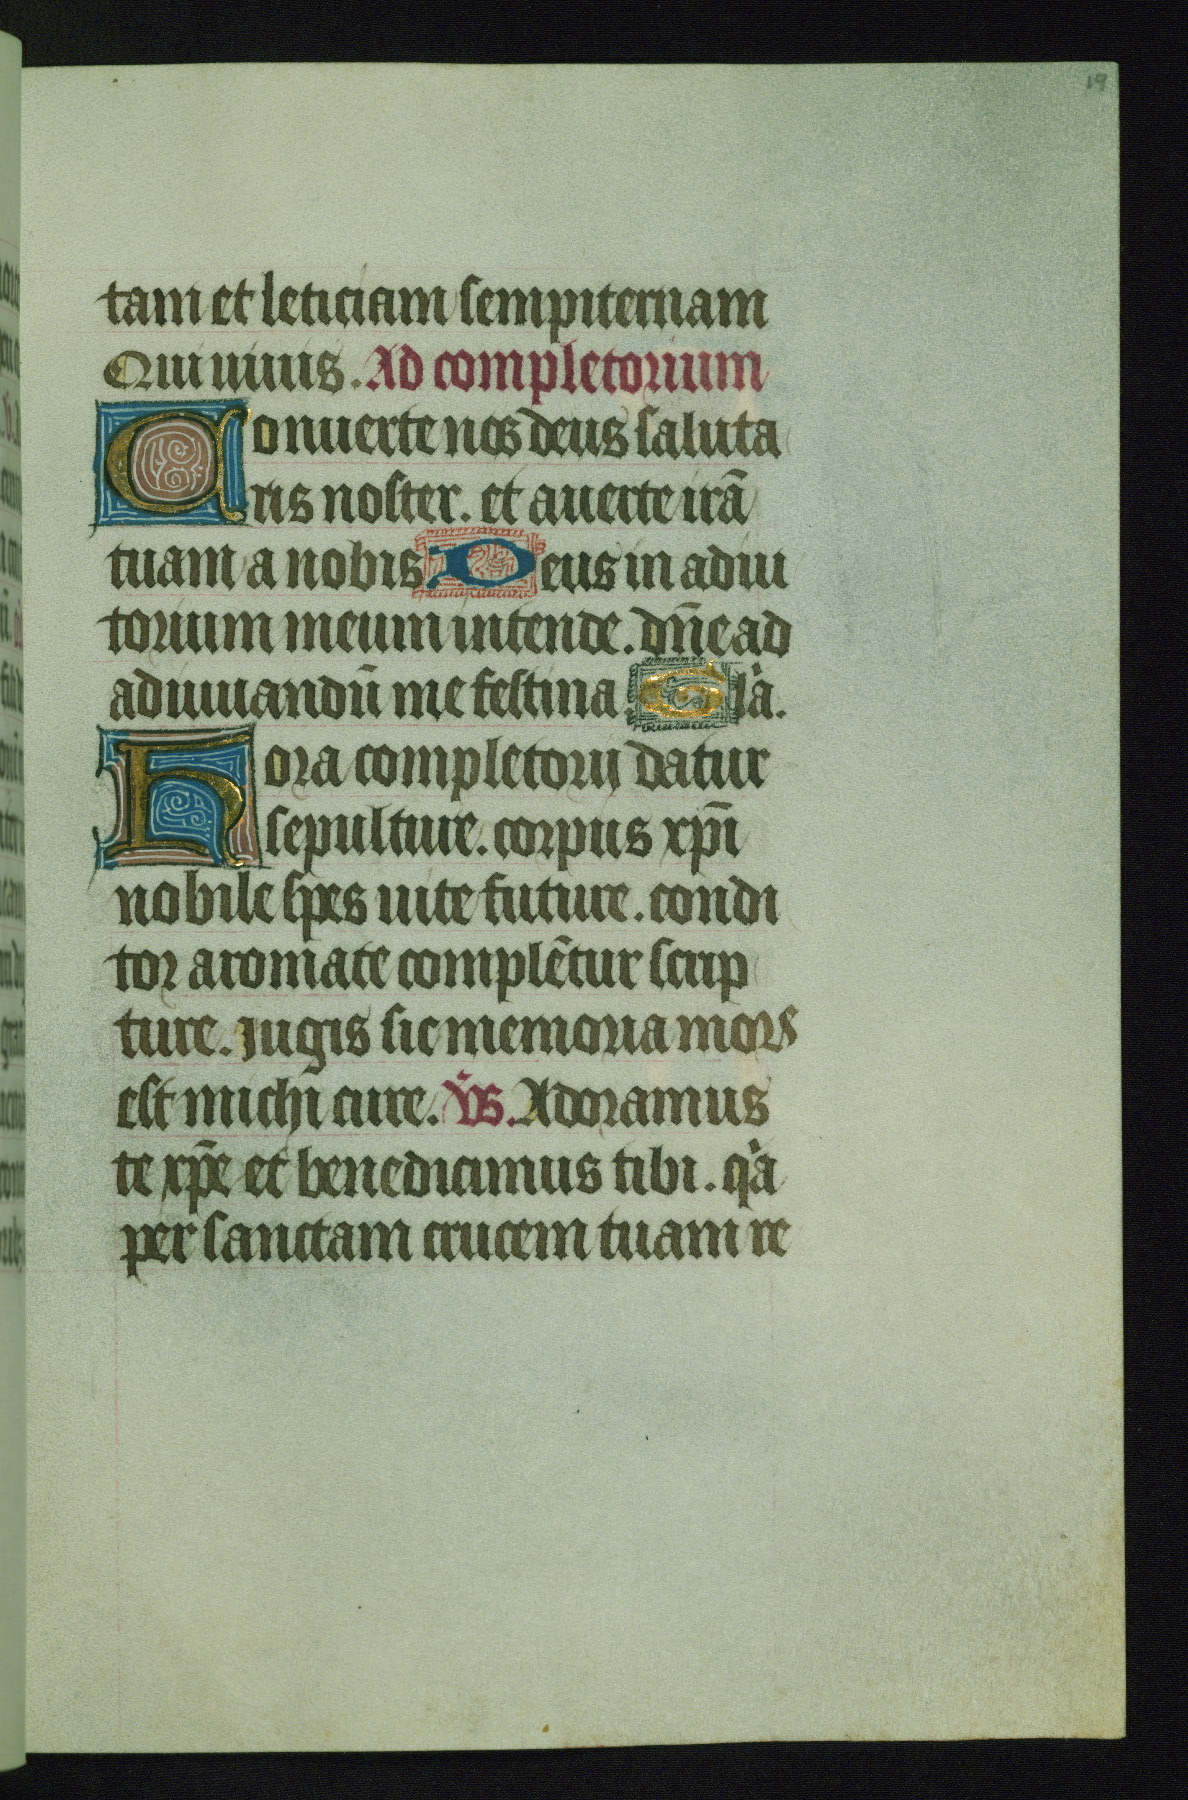 19
tam et leticiam sempiternam
Qui uiuis. Ad completorium
Conuerte nos deus saluta
ris noster. et auerte irā
tuam a nobis. Deus in adiu
torium meum intende. dñe ad
adiuuandū me festina. Gla.
Hora completorij datur
sepulture. corpus xp̄i
nobile spes uite future. condi
tor aromate complētur scrip
ture. iugis sic memoria mors
est michi cure. Vs. Adoramus
te xp̄e et benedicimus tibi. qia
per sanctam crucem tuam re